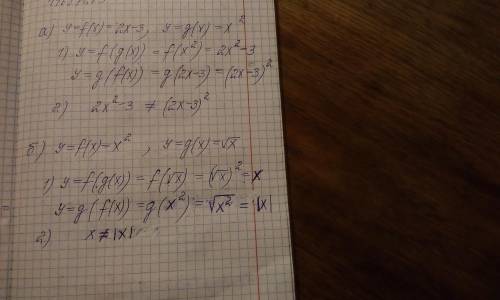 а) y=f(x)=2x-3, y=g(x)=x²
1) y=f(g(x))=f(x²)=2x²-3
y=g(f(x))=g(2x-3)=(2x-3)²
2) 2x²-3 ≠ (2x-3)²
б) y=f(x)=x², y=g(x)=√x
1) y=f(g(x))=f(√x)=(√x)²=x
y=g(f(x))=g(x²)=√x²=|x|
2) x≠|x|